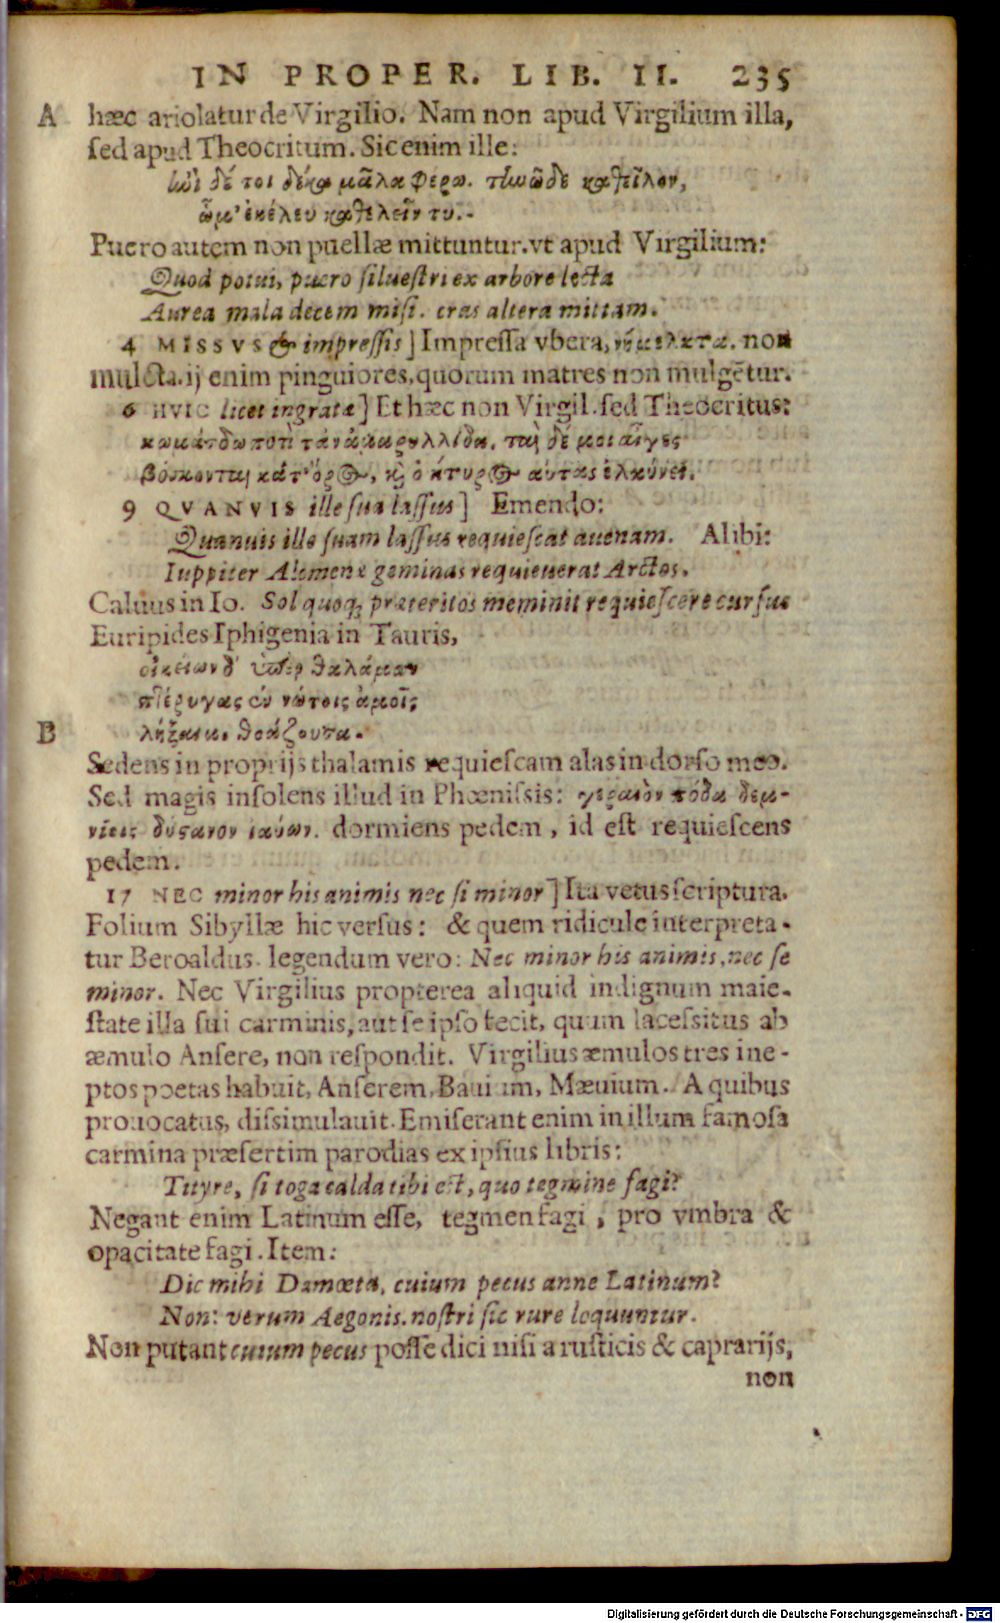 IN PROPER. LIB. II. 235
A hæc ariolatur de Virgilio. Nam non apud Virgilium illa,
sed apud Theocritum. Sic enim ille:
δέ τοι δέκα μᾶλα φέρω. τηνῶδε καθεῖλον,
ὧ μ' ἐκέλευ καθελεῖν τυ.
Puero autem non puellæ mittuntur. vt apud Virgilium:
Quod potui, puero siluestri ex arbore lecta
Aurea mala decem misi. cras altera mittam.
4 MISSVS & impressis] Impressa vbera, νήμελκτα. non
mulcta. ij enim pinguiores, quorum matres non mulgētur.
6 HVIC licet ingratæ] Et hæc non Virgil. sed Theocritus:
κωμάσδω ποτὶ τὰν ἀμαρυλλίδα. ταὶ δέ μοι αἶγες
βόσκονται κατ' ὄρος, καὶ ὁ τίτυρος αὐτὰς ἐλαύνει.
9 QVANVIS ille sua lassus] Emendo:
Quanuis ille suam lassus requiescat auenam. Alibi:
Iuppiter Alcmenæ geminas requieuerat Arctos.
Caluus in Io. Sol quoq; præteritos meminit requiescere cursus
Euripides Iphigenia in Tauris,
οἰκείων δ' ὑπὲρ θαλάμων
πτέρυγας ἐν νώτοις ἀμοῖς
B λήξαιμι θοάζουσα.
Sedens in proprijs thalamis requiescam alas in dorso meo.
Sed magis insolens illud in Phœnissis: γεραιὸν πόδα δεμ-
νίοις δύςανον ἰαύων. dormiens pedem, id est requiescens
pedem.
17 NEC minor his animis nec si minor] Ita vetus scriptura.
Folium Sibyllæ hic versus: & quem ridicule interpreta-
tur Beroaldus. legendum vero: Nec minor his animis, nec se
minor. Nec Virgilius propterea aliquid indignum maie-
state illa sui carminis, aut se ipso fecit, quum lacessitus ab
æmulo Ansere, non respondit. Virgilius æmulos tres ine-
ptos poetas habuit, Anserem, Bauium, Mæuium. A quibus
prouocatus, dissimulauit. Emiserant enim in illum famosa
carmina præsertim parodias ex ipsius libris:
Tityre, si toga calda tibi est, quo tegmine fagi?
Negant enim Latinum esse, tegmen fagi, pro vmbra &
opacitate fagi. Item:
Dic mihi Damœta, cuium pecus anne Latinum?
Non: verum Aegonis. nostri sic rure loquuntur.
Non putant cuium pecus posse dici nisi a rusticis & caprarijs,
non
Digitalisierung gefördert durch die Deutsche Forschungsgemeinschaft - DFG